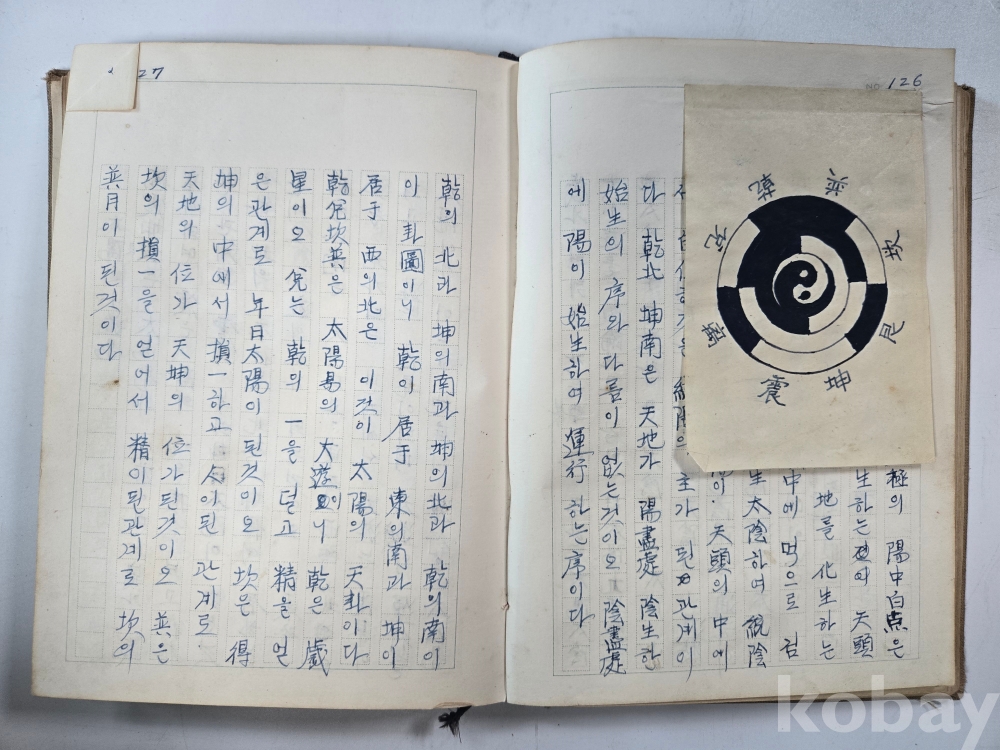 NO 126
乾
巽
坎
艮
坤
震
離
兌
極의 陽中白点은
生하는 天頭
地를 化生하는
中에 먹으로 검
生太陰하여 統陰
天頭의 中에
主가 된 관계이
다 乾北 坤南은 天地가 陽盡處 陰生한
始生의 序와 다름이 없는것이오 陰盡處
에 陽이 始生하여 運行하는 序이다
27
乾의 北과 坤의南과 坤의北과 乾의南이
이 卦圖이니 乾이 居于 東의南과 坤이
居于 西의北은 이것이 太陽의 天卦이다
乾兌坎巽은 太陽易의 大遊이니 乾은 歲
星이오 兌는 乾의 一을 덜고 精을 얻
은관계로 年日太陽이 된것이오 坎은 得
坤의 中에서 損一하고 이된 관계로
天地의 位가 天坤의 位가된것이오 巽은
坎의 損一을 얻어서 精이된관계로 坎의
巽月이 된것이다
kobay